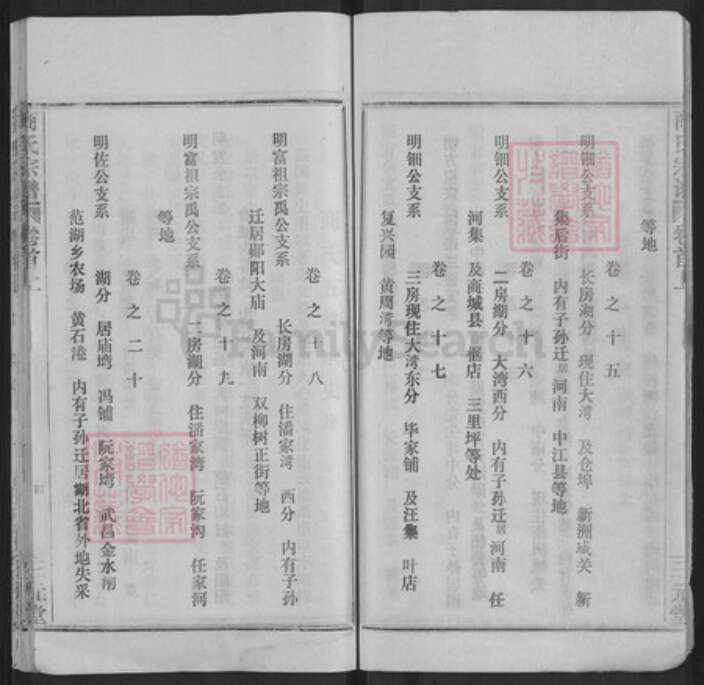 等地
卷之十五
明钿公支系 长房湖分 现住大湾 及仓埠 新洲城关 新
集后街 内有子孙迁居河南 中江县等地
卷之十六
明钿公支系 二房湖分 大湾西分 内有子孙迁居河南 任
河集 及商城县 偃店 三里坪等处
卷之十七
明钿公支系 三房现住大湾东分 毕家铺 及汪集 叶店
复兴园 黄周湾等地
卷之十八
明富祖宗禹公支系 长房湖分 住潘家湾 西分 内有子孙
迁居郧阳大庙 及河南 双柳树正街等地
卷之十九
明富祖宗禹公支系 二房湖分 住潘家湾 阮家沟 任家河
等地
卷之二十
明佐公支系 湖分 居庙塆 冯铺 阮家塆 武昌金水闸
范湖乡农场 黄石港 内有子孙迁居湖北省外地失采
氏宗谱 卷首上
三元堂
FamilySearch